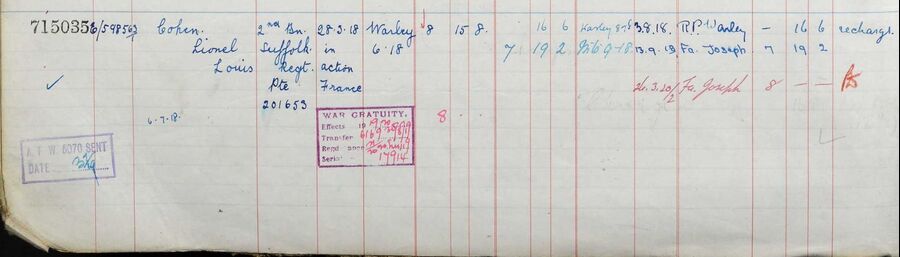 715035 E/598562 Cohen. 2nd Bn. 28.3.18 Warley 8 15 8. 16 6 Warley 3.8.18. R.P. Warley — 16 6 rechargd.
Lionel Suffolk in 6.18 7 19 2 9.18 13.9.18. Fa. Joseph 7 19 2
Louis Regt. action
✓ Pte France 26.3.20/2 Fa. Joseph 8 — —
201653
6.7.18. WAR GRATUITY. 8
Effects
Transfer
Regd
Serial 17914
A.F.W. 5070 SENT
DATE